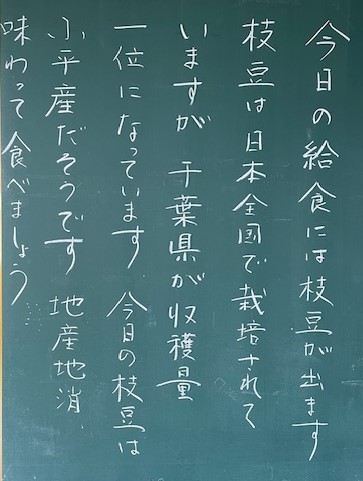 今日の給食には枝豆が出ます
枝豆は日本全国で栽培されて
いますが 千葉県が収穫量
一位になっています 今日の枝豆は
小平産だそうです 地産地消
味わって食べましょう